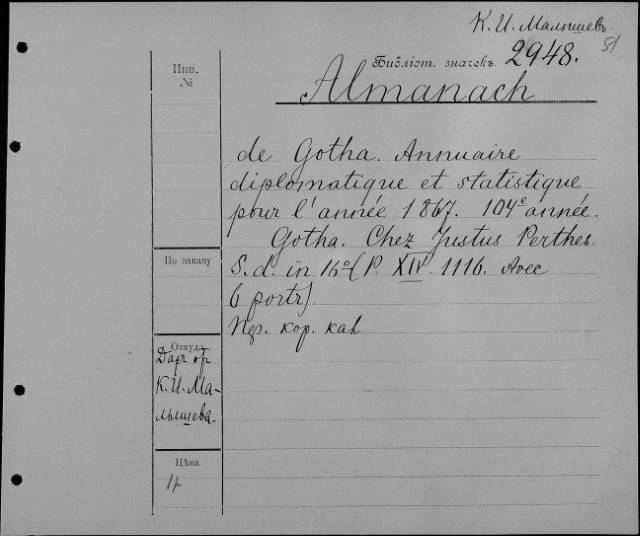 К. И. Малышевъ
51
Библіот. значекъ 2948.
Инв.
№
Almanach
de Gotha. Annuaire
diplomatique et statistique
pour l'année 1867. 104e année.
Gotha. Chez Justus Perthes.
S. d. in 16º (P. XIV. 1116. Avec
6 portr)
кор. каl
По заказу
Откуда
Даръ отъ
К. И. Ма-
лышева.
Цѣна
1р